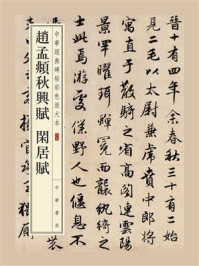 晉十有四年余春秋三十有二
毛以太尉掾兼虎賁中郎將
散騎之省高閣連雲陽
景罕曜珥蟬冕而襲紈綺之
士此焉遊處僕野人也
中華經典碑帖彩色放大本
趙孟頫秋興賦 閑居賦
中華書局